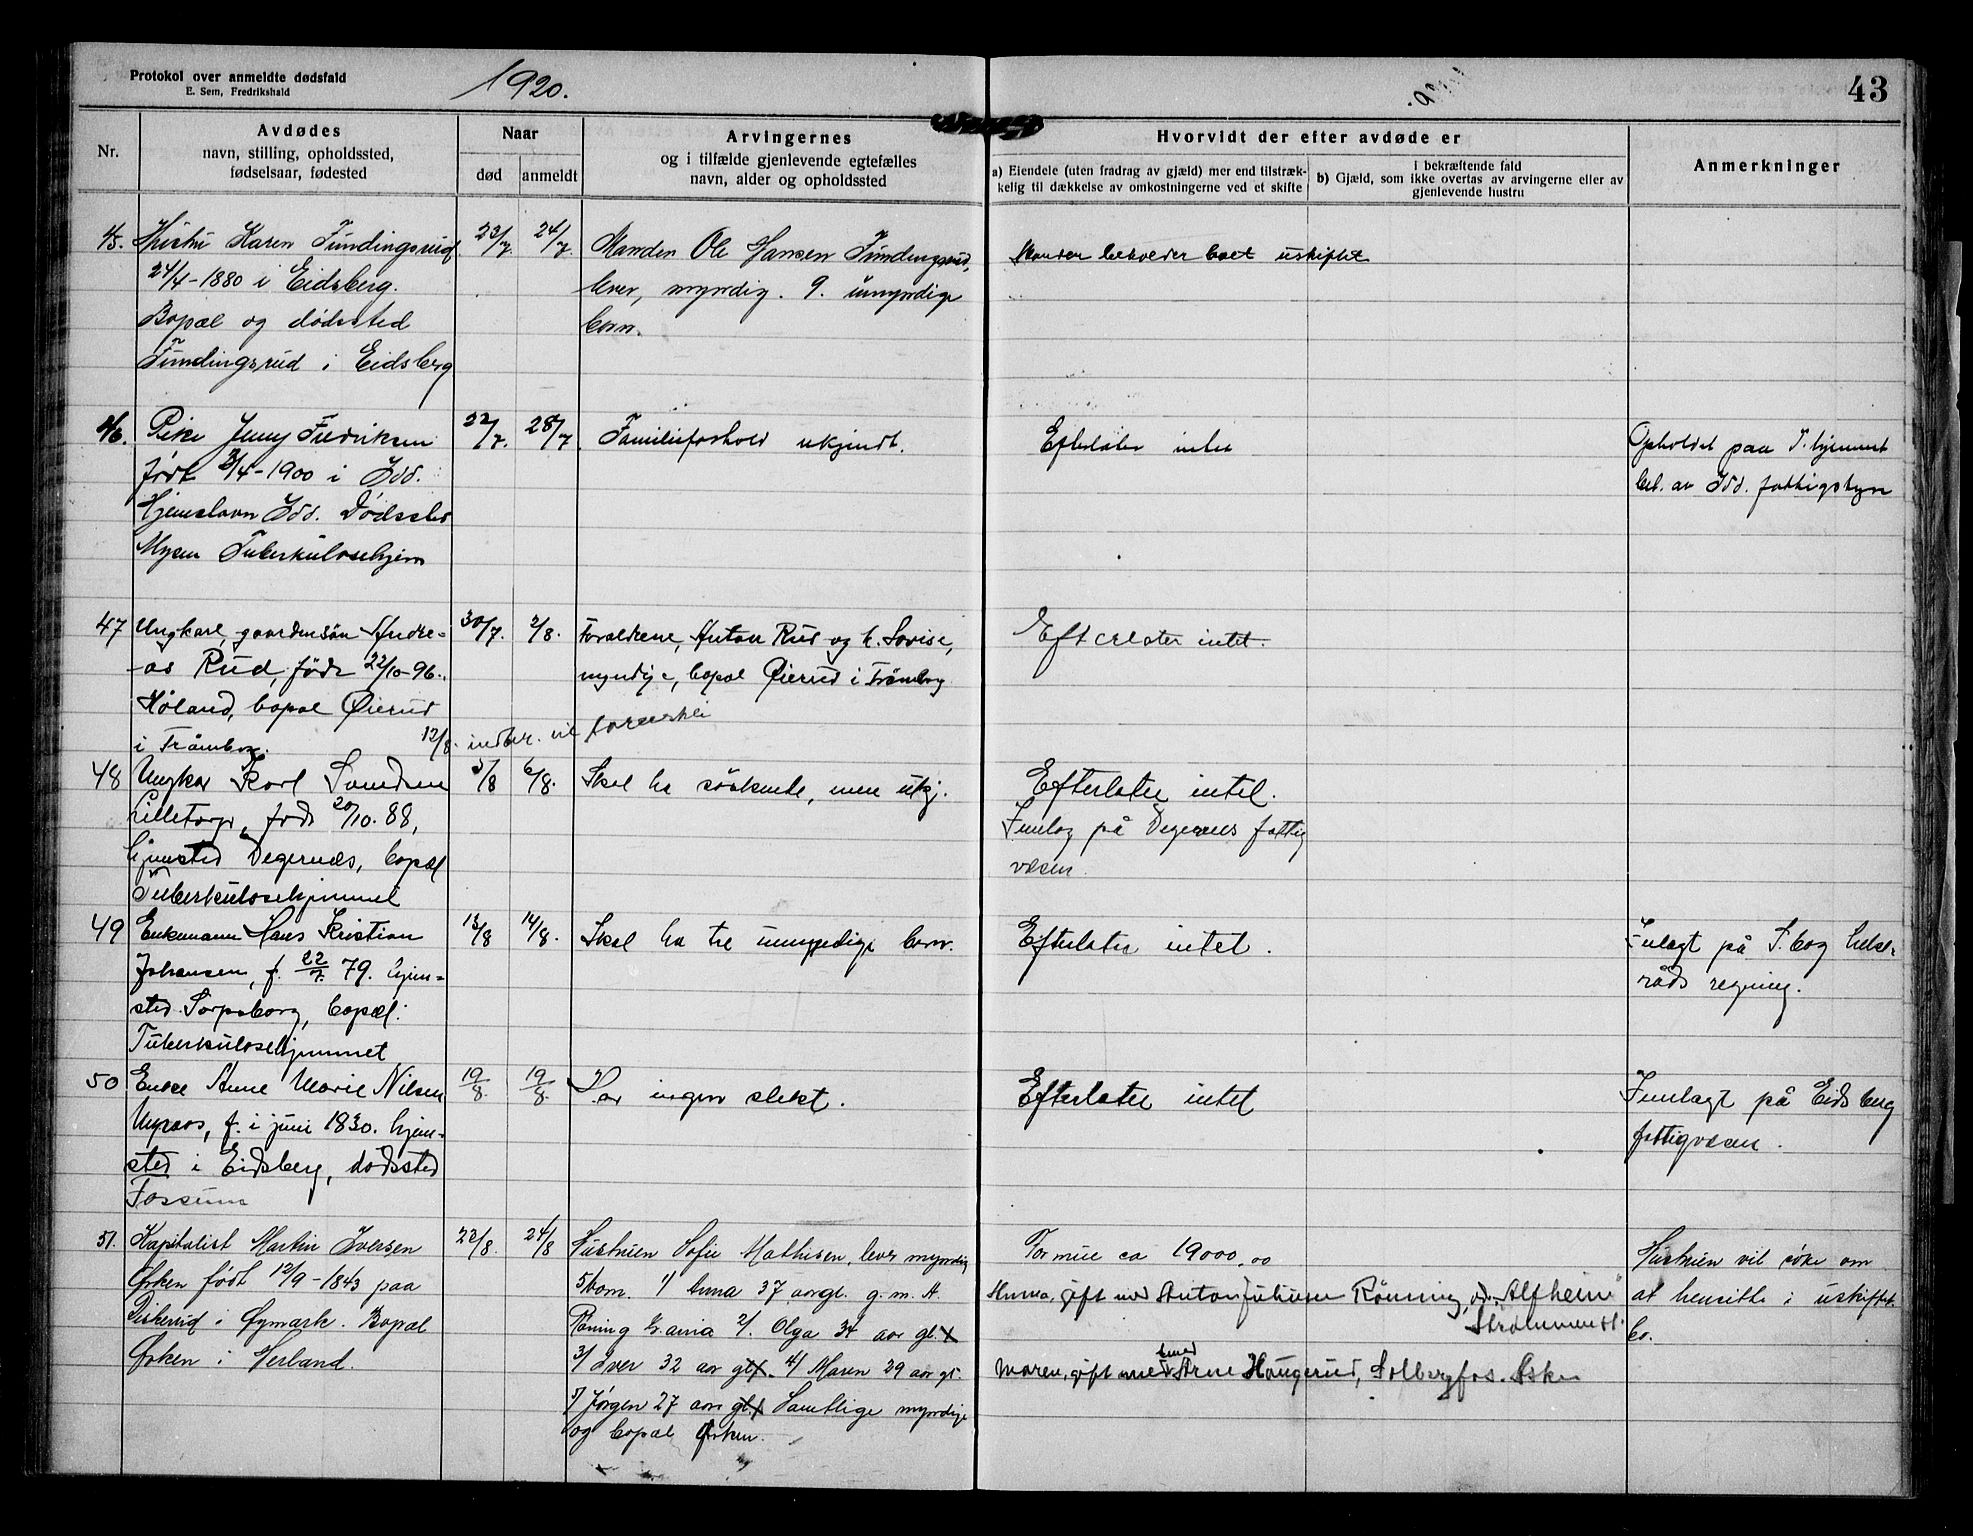 Protokol over anmeldte dødsfald
E. Sem, Fredrikshald
1920.
43
Nr.
Avdødes
navn, stilling, opholdssted,
fødselsaar, fødested
Naar
død
anmeldt
Arvingernes
og i tilfælde gjenlevende egtefælles
navn, alder og opholdssted
Hvorvidt der efter avdøde er
a) Eiendele (uten fradrag av gjæld) mer end tilstræk-
kelig til dækkelse av omkostningerne ved et skifte
i bekræftende fald
b) Gjæld, som ikke overtas av arvingerne eller av
gjenlevende hustru
Anmerkninger
45.
Hustru Karen Fundingsrud
24/4-1880 i Eidsberg.
Bopæl og dødssted
Fundingsrud i Eidsberg
23/7.
24/7.
Manden Ole Hansen Fundingsrud,
lever, myndig. 9. umyndige
børn.
Manden beholder boet uskiftet
46.
Pike Jenny Fredriksen
født 3/4-1900 i Idd.
Hjemstavn Idd. Dødssted
Mysen Tuberkulosehjem
22/7.
28/7.
Familieforhold ukjendt.
Efterlater intet
Opholdet paa T. hjemmet
bet. av Idd. fattigstyre
47
Ungkarl, gaardersøn Andre-
as Rud, født 22/10-96.
Høland, bopæl Øierud
i Trømborg.
30/7.
2/8.
Forældrene, Anton Rud og h. Lovise,
myndige, bopæl Øierud i Trømborg
Efterlater intet.
12/8. indber. vil
48
Ungkar Karl Sandem
Lilletorp, født 20/10.88,
hjemsted Degernes, bopæl
Tuberkulosehjemmet
5/8
6/8.
Skal ha søskende, men ukj.
Efterlater intet.
Innlag på Degernes fattig
væsen.
49
Enkemann Hans Kristian
Johansen, f. 22/7. 79. hjem-
sted Sarpsborg, bopæl:
Tuberkulosehjemmet
13/8
14/8.
Skal ha tre umyndige børn.
Efterlater intet.
Innlagt på S.borg helse-
råds regning.
50
Enke Anne Marie Nilsen
f. i juni 1830. hjem-
sted i Eidsberg, dødssted
Fossum
19/8.
19/8.
Har ingen slekt.
Efterlater intet
Innlagt på Eidsberg
fattigvæsen.
51.
Kapitalist Martin Iversen
Ørken født 12/9-1843 paa
i Øymark. Bopæl
Ørken i Herland.
22/8.
24/8
Hustruen Sofie Mathisen, lever myndig
5 barn. 1/ Anna 37 aar gl. g. m. A.
Røning 2/. Olga 34 aar gl.
3/ Iver 32 aar gl. 4/ Maren 29 aar gl.
5/ Jørgen 27 aar gl. Samtlige myndige
og bopæl Ørken.
Formue ca 19000,00
Anna, gift med Anton Julius Rønning, adr. "Alfheim"
Strømmen st.
Maren, gift med Arne Haugerud, Solbergfos. Askim
Hustruen vil søke om
at hensitte i uskiftet
bo.